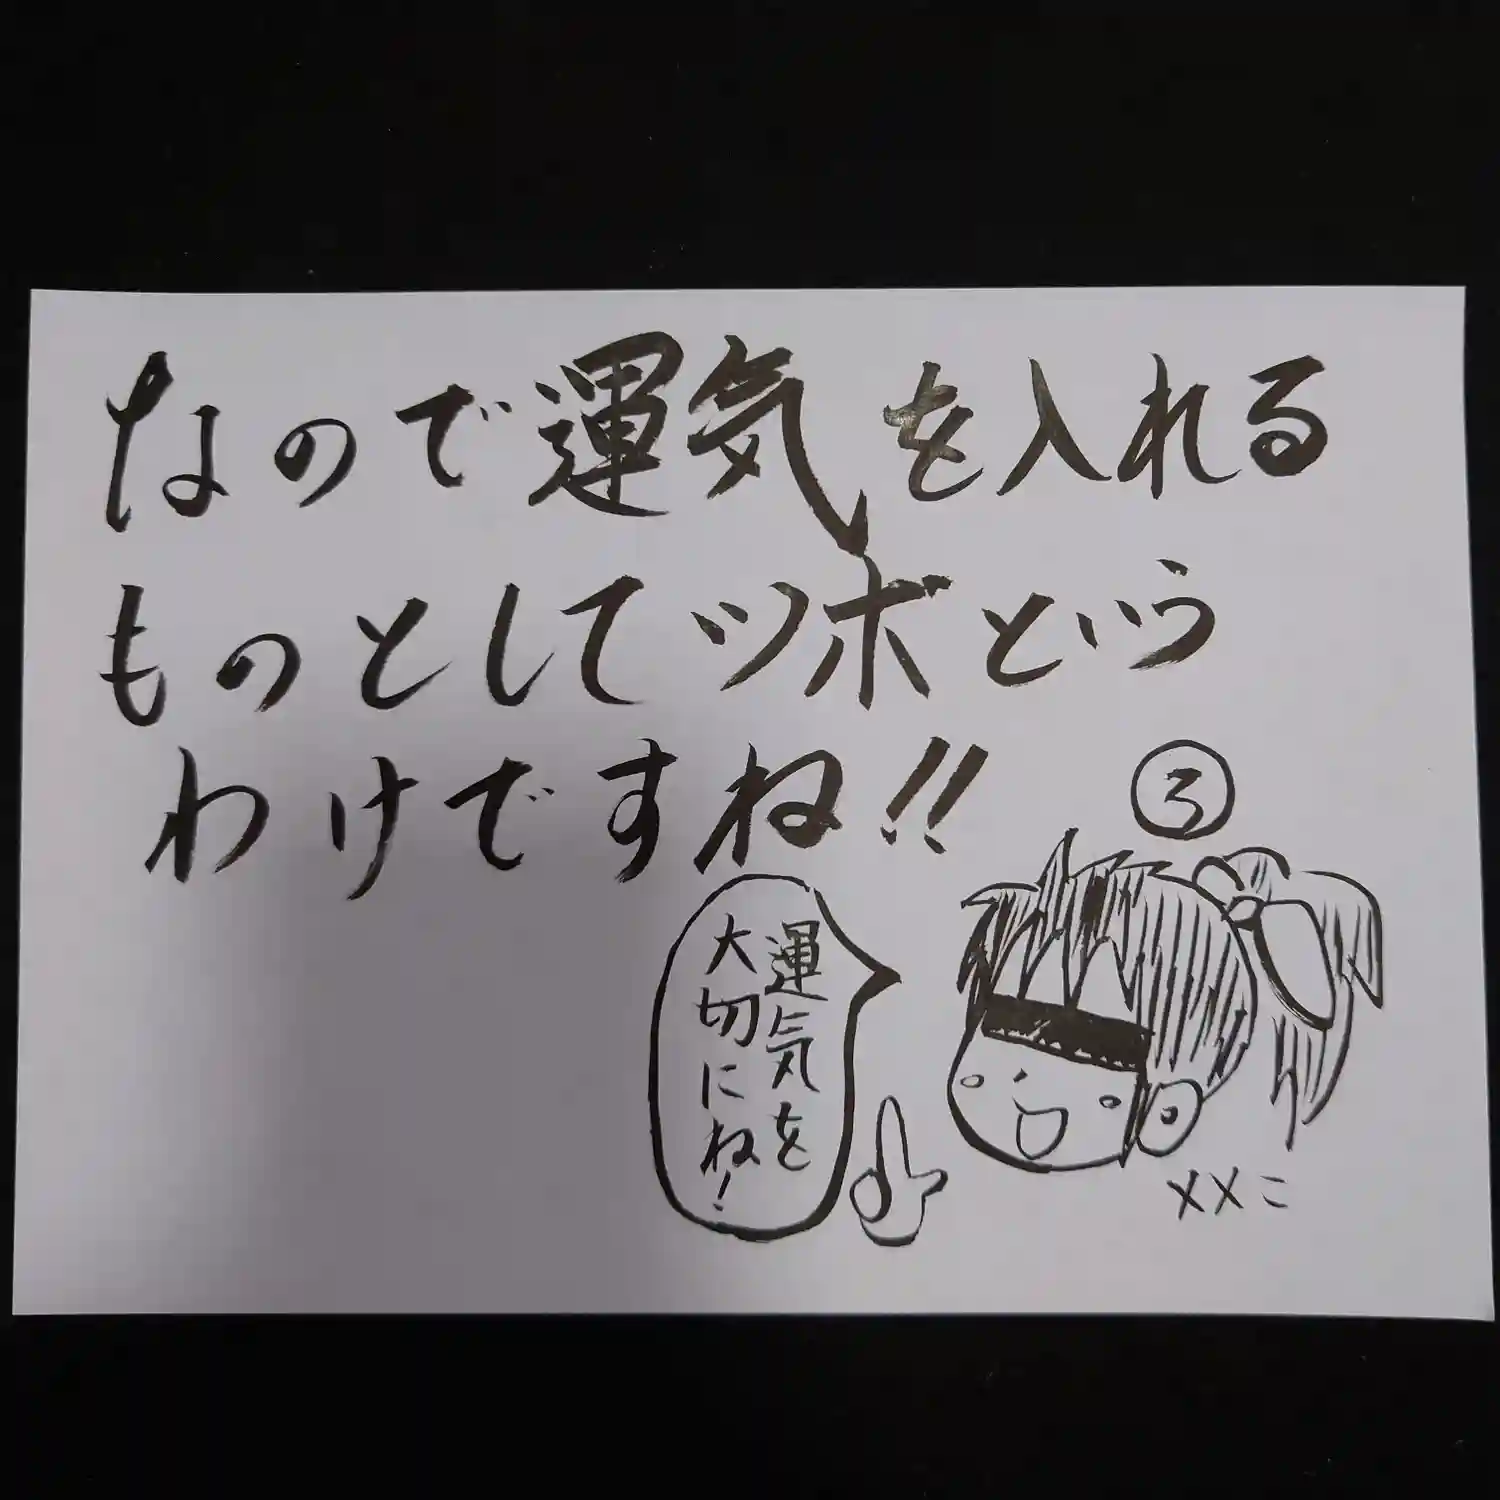 なので運気を入れる
ものとしてツボという
わけですね!!
ろ
運気を
大切にね!
メメこ